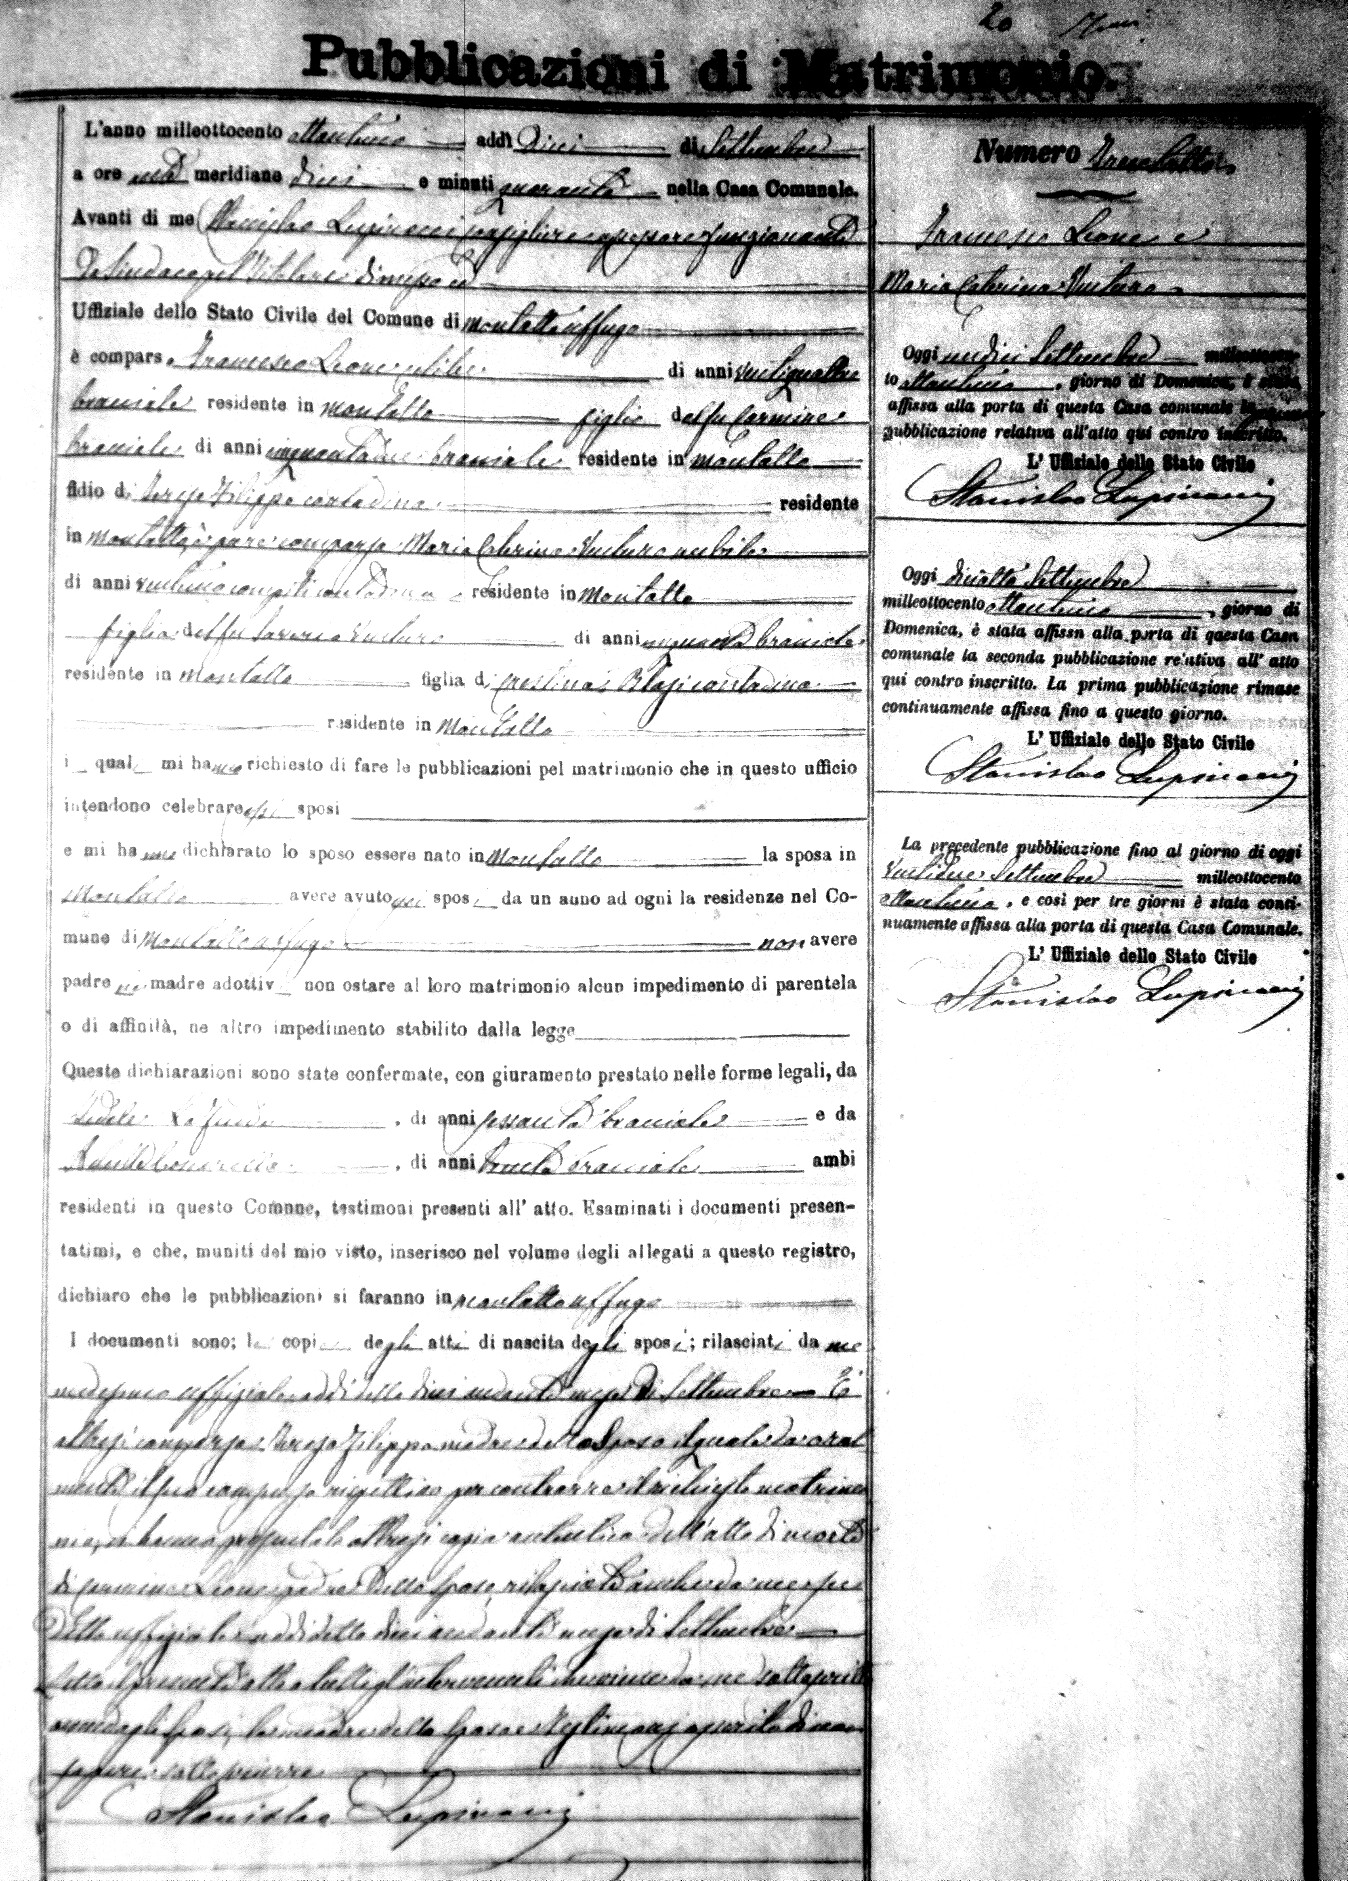 20
Pubblicazioni di Matrimonio.
L'anno milleottocento ottantuno addì Dieci di Settembre
a ore meridiane dieci e minuti quaranta nella Casa Comunale.
Avanti di me Stanislao Lupinacci Consigliere assessore funzionante
Da Sindaco pel Titolare
Uffiziale dello Stato Civile del Comune di Montalto Uffugo
è compars o Francesco Leone celibe di anni ventiquattro
bracciale residente in Montalto figlio del fu Carmine
bracciale di anni bracciale residente in Montalto
e di Teresa Filippo contadina residente
in Montalto, è pure comparsa Maria Caterina nubile
di anni ventuno compiti contadina residente in Montalto
figlia del fu Saverio di anni cinquanta bracciale
residente in Montalto figlia di contadina
residente in Montalto
i quali mi hanno richiesto di fare le pubblicazioni pel matrimonio che in questo ufficio
intendono celebrare essi sposi
e mi hanno dichiarato lo sposo essere nato in Montalto la sposa in
Montalto avere avuto sposi da un anno ad ogni la residenze nel Co-
mune di Montalto Uffugo non avere
padre nè madre adottiv non ostare al loro matrimonio alcun impedimento di parentela
o di affinità, ne altro impedimento stabilito dalla legge
Queste dichiarazioni sono state confermate, con giuramento prestato nelle forme legali, da
Fedele , di anni sessanta bracciale e da
, di anni trenta bracciale ambi
residenti in questo Comune, testimoni presenti all' atto. Esaminati i documenti presen-
tatimi, e che, muniti del mio visto, inserisco nel volume degli allegati a questo registro,
dichiaro che le pubblicazioni si faranno in Montalto Uffugo
I documenti sono; le copie degli atti di nascita degli sposi; rilasciati da me
medesimo uffiziale addì detto dieci andante mese di Settembre E'
altresì comparsa Teresa Filippo madre dello Sposo la quale dà oral
mente il suo consenso rispettivo per contrarre il richiesto matrimo
nio, mi hanno presentato altresì copia autentica dell'atto di morte
di Carmine Leone padre dello Sposo, rilasciata anche da me su
detto uffiziale addì detto dieci andante mese di Settembre
Letto il presente atto a tutti gl'intervenuti da me sottoscritto
Sposi, la madre dello Sposo e testimoni non
sapere sottoscrivere
Stanislao Lupinacci
Numero Trentotto
Francesco Leone e
Maria Caterina
Oggi undici Settembre milleottocen-
to ottantuno, giorno di Domenica, è stata
affissa alla porta di questa Casa comunale la
pubblicazione relativa all'atto qui contro inscritto.
L' Uffiziale dello Stato Civile
Stanislao Lupinacci
Oggi diciotto Settembre
milleottocento ottantuno, giorno di
Domenica, è stata affissa alla porta di questa Casa
comunale la seconda pubblicazione relativa all' atto
qui contro inscritto. La prima pubblicazione rimase
continuamente affissa fino a questo giorno.
L' Uffiziale dello Stato Civile
Stanislao Lupinacci
La precedente pubblicazione fino al giorno di oggi
Settembre milleottocento
ottantuno, e così per tre giorni è stata conti-
nuamente affissa alla porta di questa Casa Comunale.
L' Uffiziale dello Stato Civile
Stanislao Lupinacci